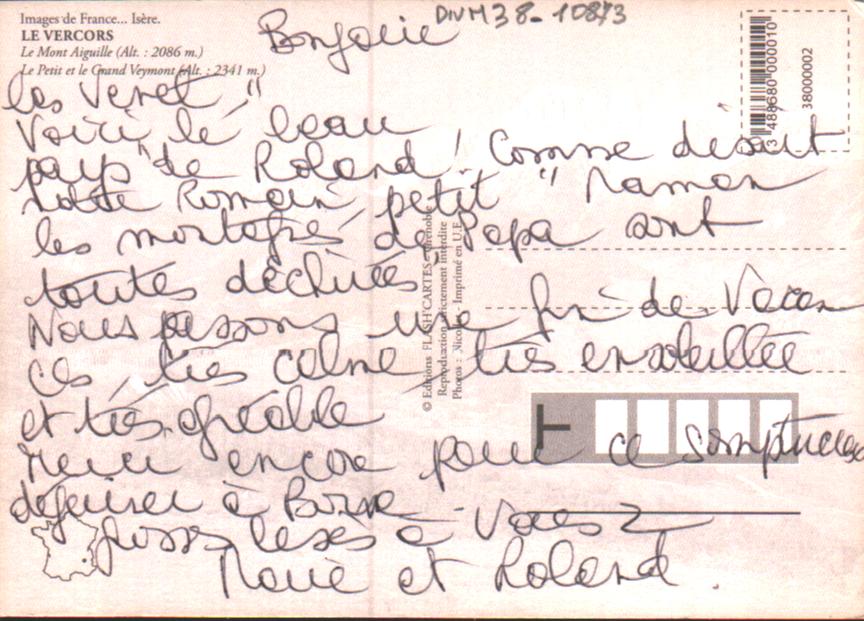 Images de France... Isère.
LE VERCORS
Le Mont Aiguille (Alt. : 2086 m.)
Le Petit et le Grand Veymont (Alt. : 2341 m.)
DIVM38-10873
3 488680 000010
38000002
Bonjour
les Veret
Voici le beau
pays de Roland ! Comme disait
notre Romain petit " Maman
les montagnes de Papa sont
toutes
Nous passons une fin de Vacan
ces très calme très ensoleillée
et très agréable
Merci encore pour ce somptueux
déjeuner à
Grosses bises à Vous 2
et Roland.
© Editions FLASH'CARTES - Grenoble
Reproduction strictement interdite
Photos : - Imprimé en U.E.